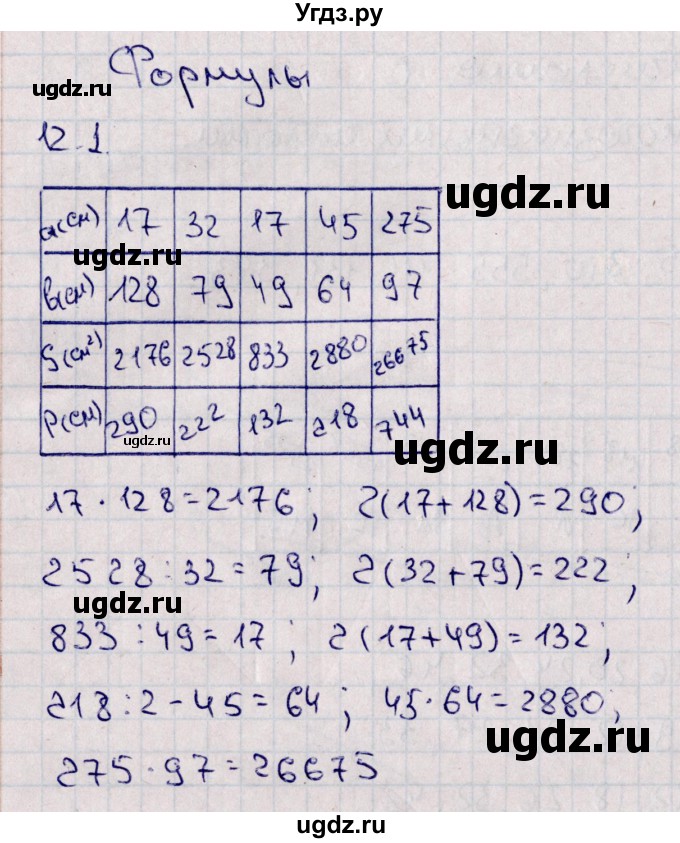 Угдз.ру
Формулы
ugdz.ru
12.1.
ugdz.ru
a(см) 17 32 17 45 275
b(см) 128 79 49 64 97
S(см²) 2176 2528 833 2880 26675
P(см) 290 222 132 218 744
ugdz.ru
ugdz.ru
17 · 128 = 2176; 2(17+128) = 290;
2528 : 32 = 79; 2(32+79) = 222;
ugdz.ru
ugdz.ru
833 : 49 = 17; 2(17+49) = 132;
218 : 2 - 45 = 64; 45 · 64 = 2880;
ugdz.ru
275 · 97 = 26675
ugdz.ru
ugdz.ru